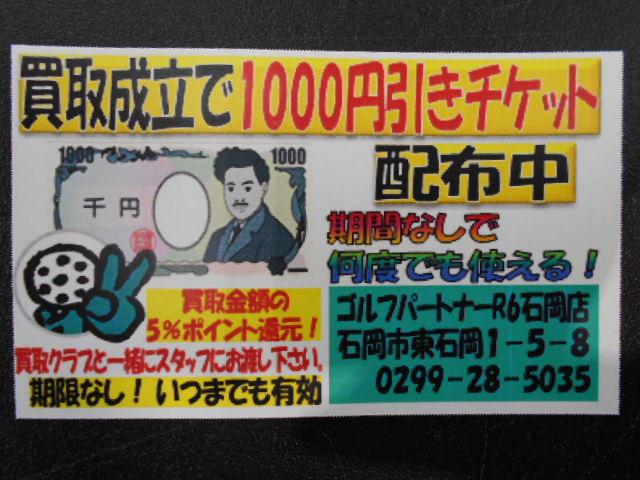 買取成立で1000円引きチケット
配布中
1000
1000
千円
期間なしで
何度でも使える!
買取金額の
5%ポイント還元!
買取クラブと一緒にスタッフにお渡し下さい。
期限なし!いつまでも有効
ゴルフパートナーR6石岡店
石岡市東石岡1-5-8
0299-28-5035